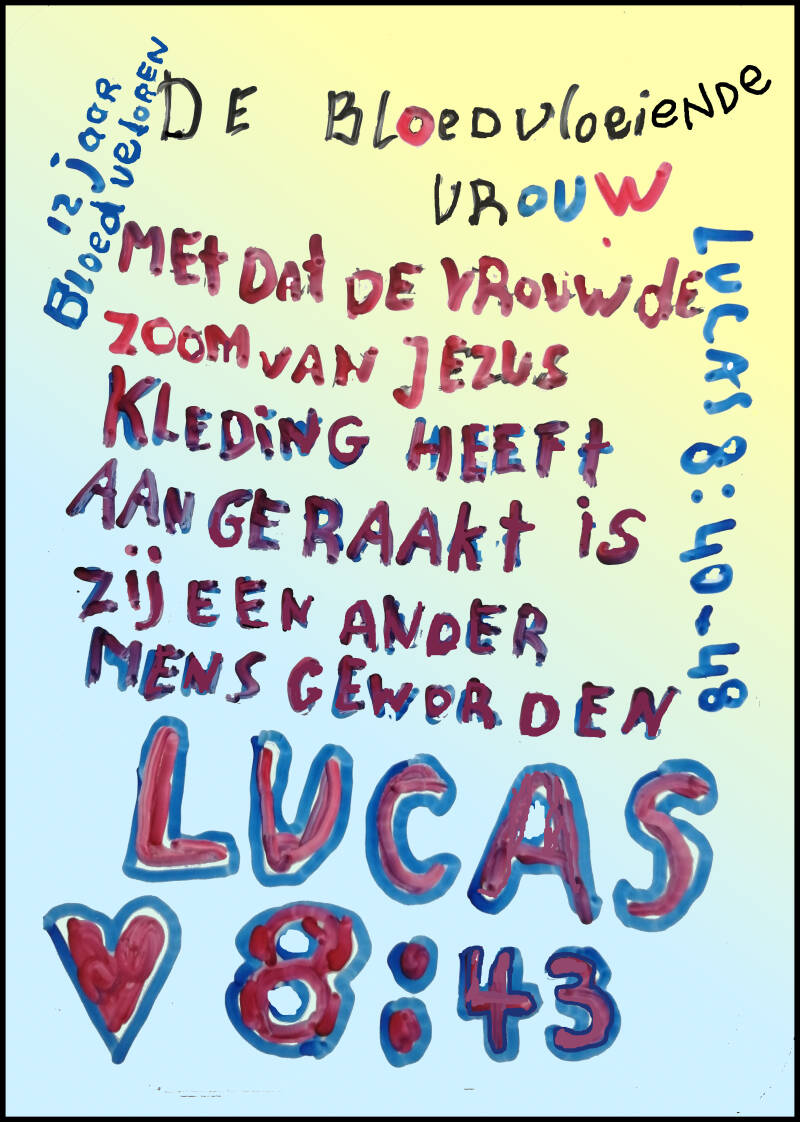 12 jaar
Bloed veloren
DE BLoeDvloeieNDe
VROUW
MEt DAt DE VROUW dE
ZOOM VAN JEZUS
KLEDiNG HEEFt
AANGERAAKt iS
ZijEEN ANDER
MENS GEWORDEN
LUCAS 8:40-48
LUCAS
♥ 8:43